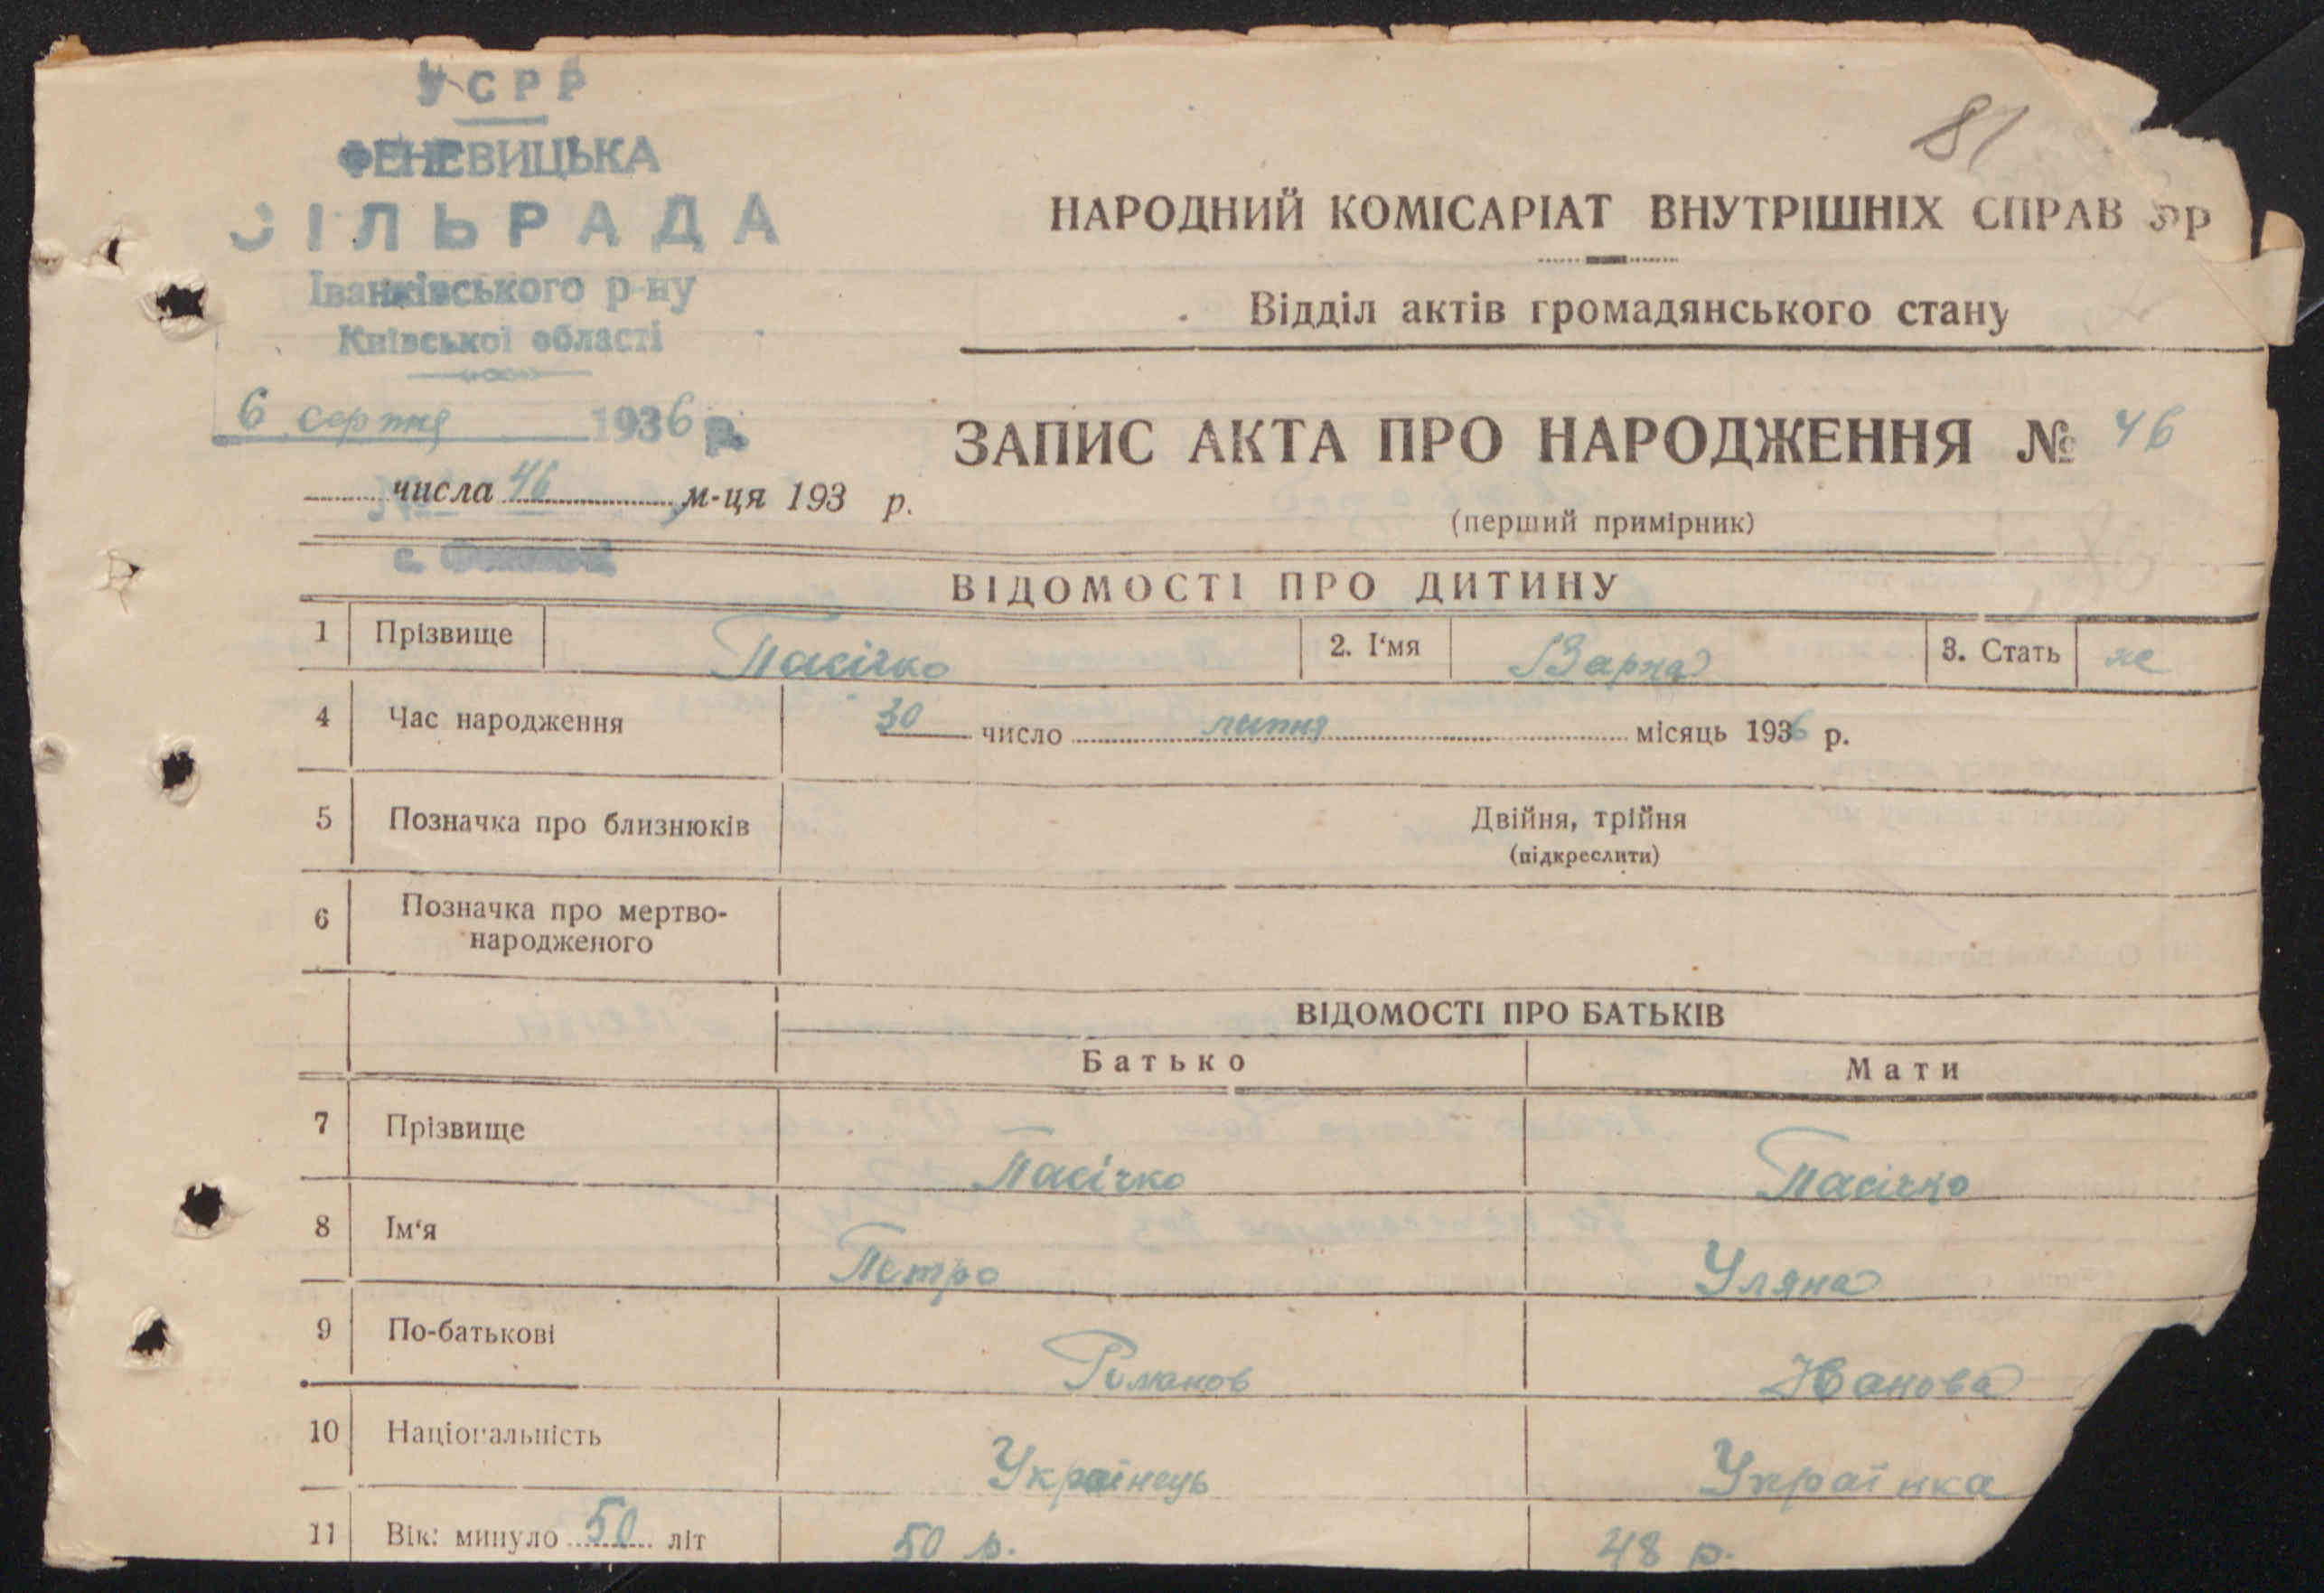 УСРР
ФЕНЕВИЦЬКА
СІЛЬРАДА
Іванківського р-ну
Київської області
6 серпня 1936 р.
числа 46 м-ця 193 р.
с.
81
НАРОДНИЙ КОМІСАРІАТ ВНУТРІШНІХ СПРАВ
Відділ актів громадянського стану
ЗАПИС АКТА ПРО НАРОДЖЕННЯ № 46
(перший примірник)
ВІДОМОСТІ ПРО ДИТИНУ
1 Прізвище Пасічко 2. І'мя Варка 3. Стать ж
4 Час народження 30 число липня місяць 1936 р.
5 Позначка про близнюків Двійня, трійня
(підкреслити)
6 Позначка про мертво-
народженого
ВІДОМОСТІ ПРО БАТЬКІВ
Батько Мати
7 Прізвище Пасічко Пасічко
8 Ім'я Петро Уляна
9 По-батькові Романов Іванова
10 Національність Українець Українка
11 Вік: минуло 50 літ 50 р. 48 р.